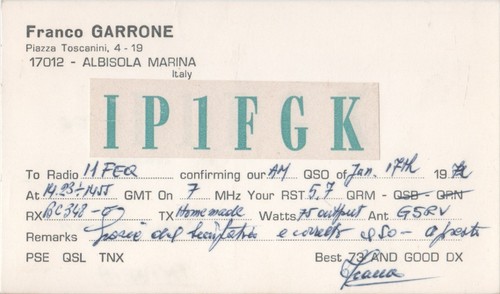 Franco GARRONE
Piazza Toscanini, 4 - 19
17012 - ALBISOLA MARINA
Italy
IP1FGK
To Radio I1FEQ confirming our AM QSO of Jan. 17th 197
At 14.23÷1455 GMT On 7 MHz Your RST 5,7 QRM - QSB - QRN
RX BC348-Q TX Homemade Watts 75 output Ant G5RV
Remarks Grazie del e QSO - a presto
PSE QSL TNX Best 73 AND GOOD DX
Franco